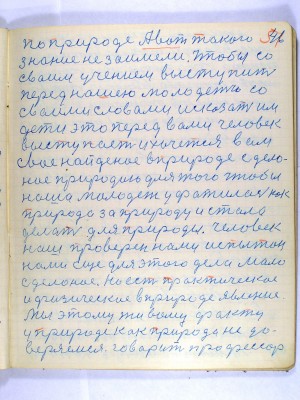 по природе А вот такого
знание не заимели. Чтобы со
своим учением выступит
перед нашею молодежь со
своими словами и сказат им
дети это перед вами человек
выступает и хочется вам
свое найденое в природе сдело-
ное природию для того чтобы
наша молодеж ухватилас как
природа за природу и стала
делать для природы. Человек
наш проверен нами испытан
нами еще для этого дела мало
сделоное. Но ест практическое
и физическое в природе явление.
Мы этому живому факту
у природе как природа не до-
веряемся. говорит профессор